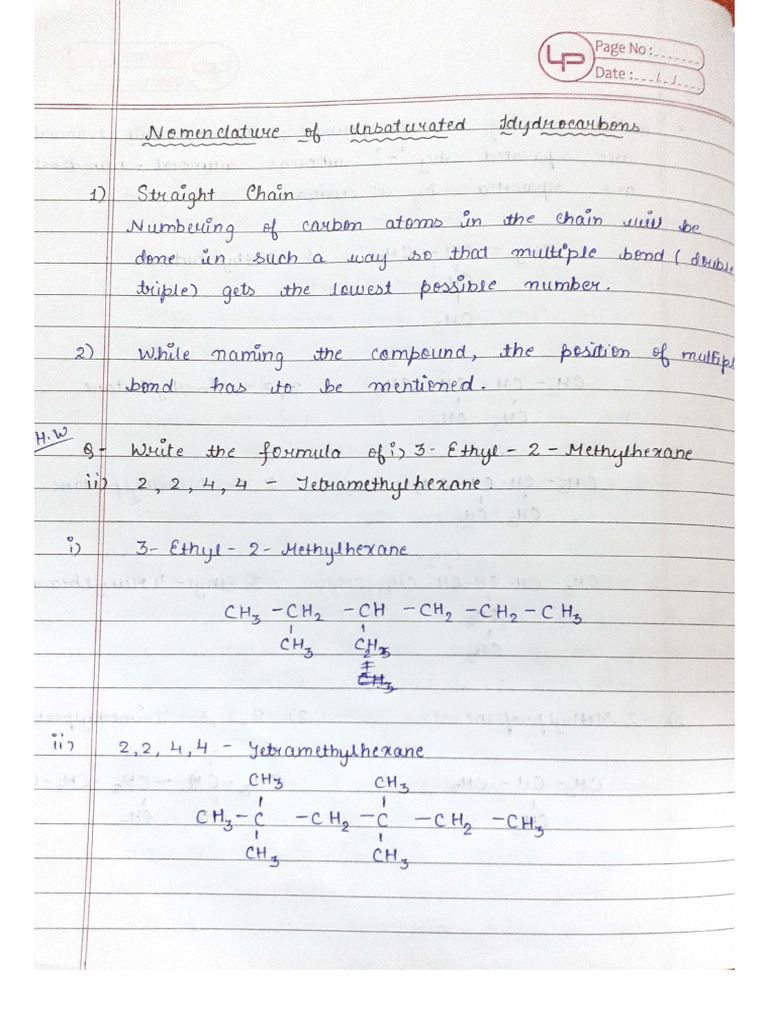 LP
Page No :
Date :
Nomenclature of Unsaturated Hydrocarbons
1) Straight Chain
Numbering of carbon atoms in the chain will be
done in such a way so that multiple bond ( double
triple) gets the lowest possible number.
2) While naming the compound, the position of multiple
bond has to be mentioned.
H.W
Q- Write the formula of i) 3- Ethyl - 2 - Methylhexane
ii) 2, 2, 4, 4 - Tetramethylhexane.
i) 3- Ethyl - 2- Methylhexane
CH₃ - CH₂ - CH - CH₂ - CH₂ - CH₃
CH₃ CH₂
CH₃
ii) 2,2, 4,4 - Tetramethylhexane
CH₃ CH₃
CH₃ - C - CH₂ - C - CH₂ - CH₃
CH₃ CH₃